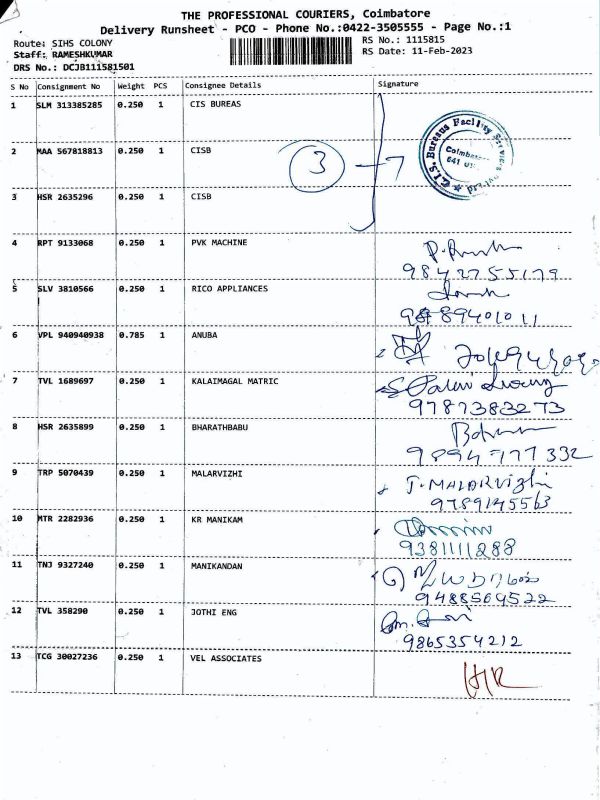 THE PROFESSIONAL COURIERS, Coimbatore
Delivery Runsheet - PCO - Phone No.:0422-3505555 - Page No.:1
Route: SIHS COLONY
RS No.: 1115815
Staff: RAMESHKUMAR
RS Date: 11-Feb-2023
DRS No.: DCJB111581501
S No Consignment No Weight PCS Consignee Details Signature
1 SLM 313385285 0.250 1 CIS BUREAS
2 MAA 567818813 0.250 1 CISB
3
C.I.S. Bureaus Facility Services
3 HSR 2635296 0.250 1 CISB
4 RPT 9133068 0.250 1 PVK MACHINE
9842755179
5 SLV 3810566 0.250 1 RICO APPLIANCES
6 VPL 940940938 0.785 1 ANUBA
7 TVL 1689697 0.250 1 KALAIMAGAL MATRIC
9787383273
8 HSR 2635899 0.250 1 BHARATHBABU
9894777332
9 TRP 5070439 0.250 1 MALARVIZHI
T. MALARVIzhi
9789145563
10 MTR 2282936 0.250 1 KR MANIKAM
9381111288
11 TNJ 9327240 0.250 1 MANIKANDAN
9488569522
12 TVL 358290 0.250 1 JOTHI ENG
9865354212
13 TCG 30027236 0.250 1 VEL ASSOCIATES